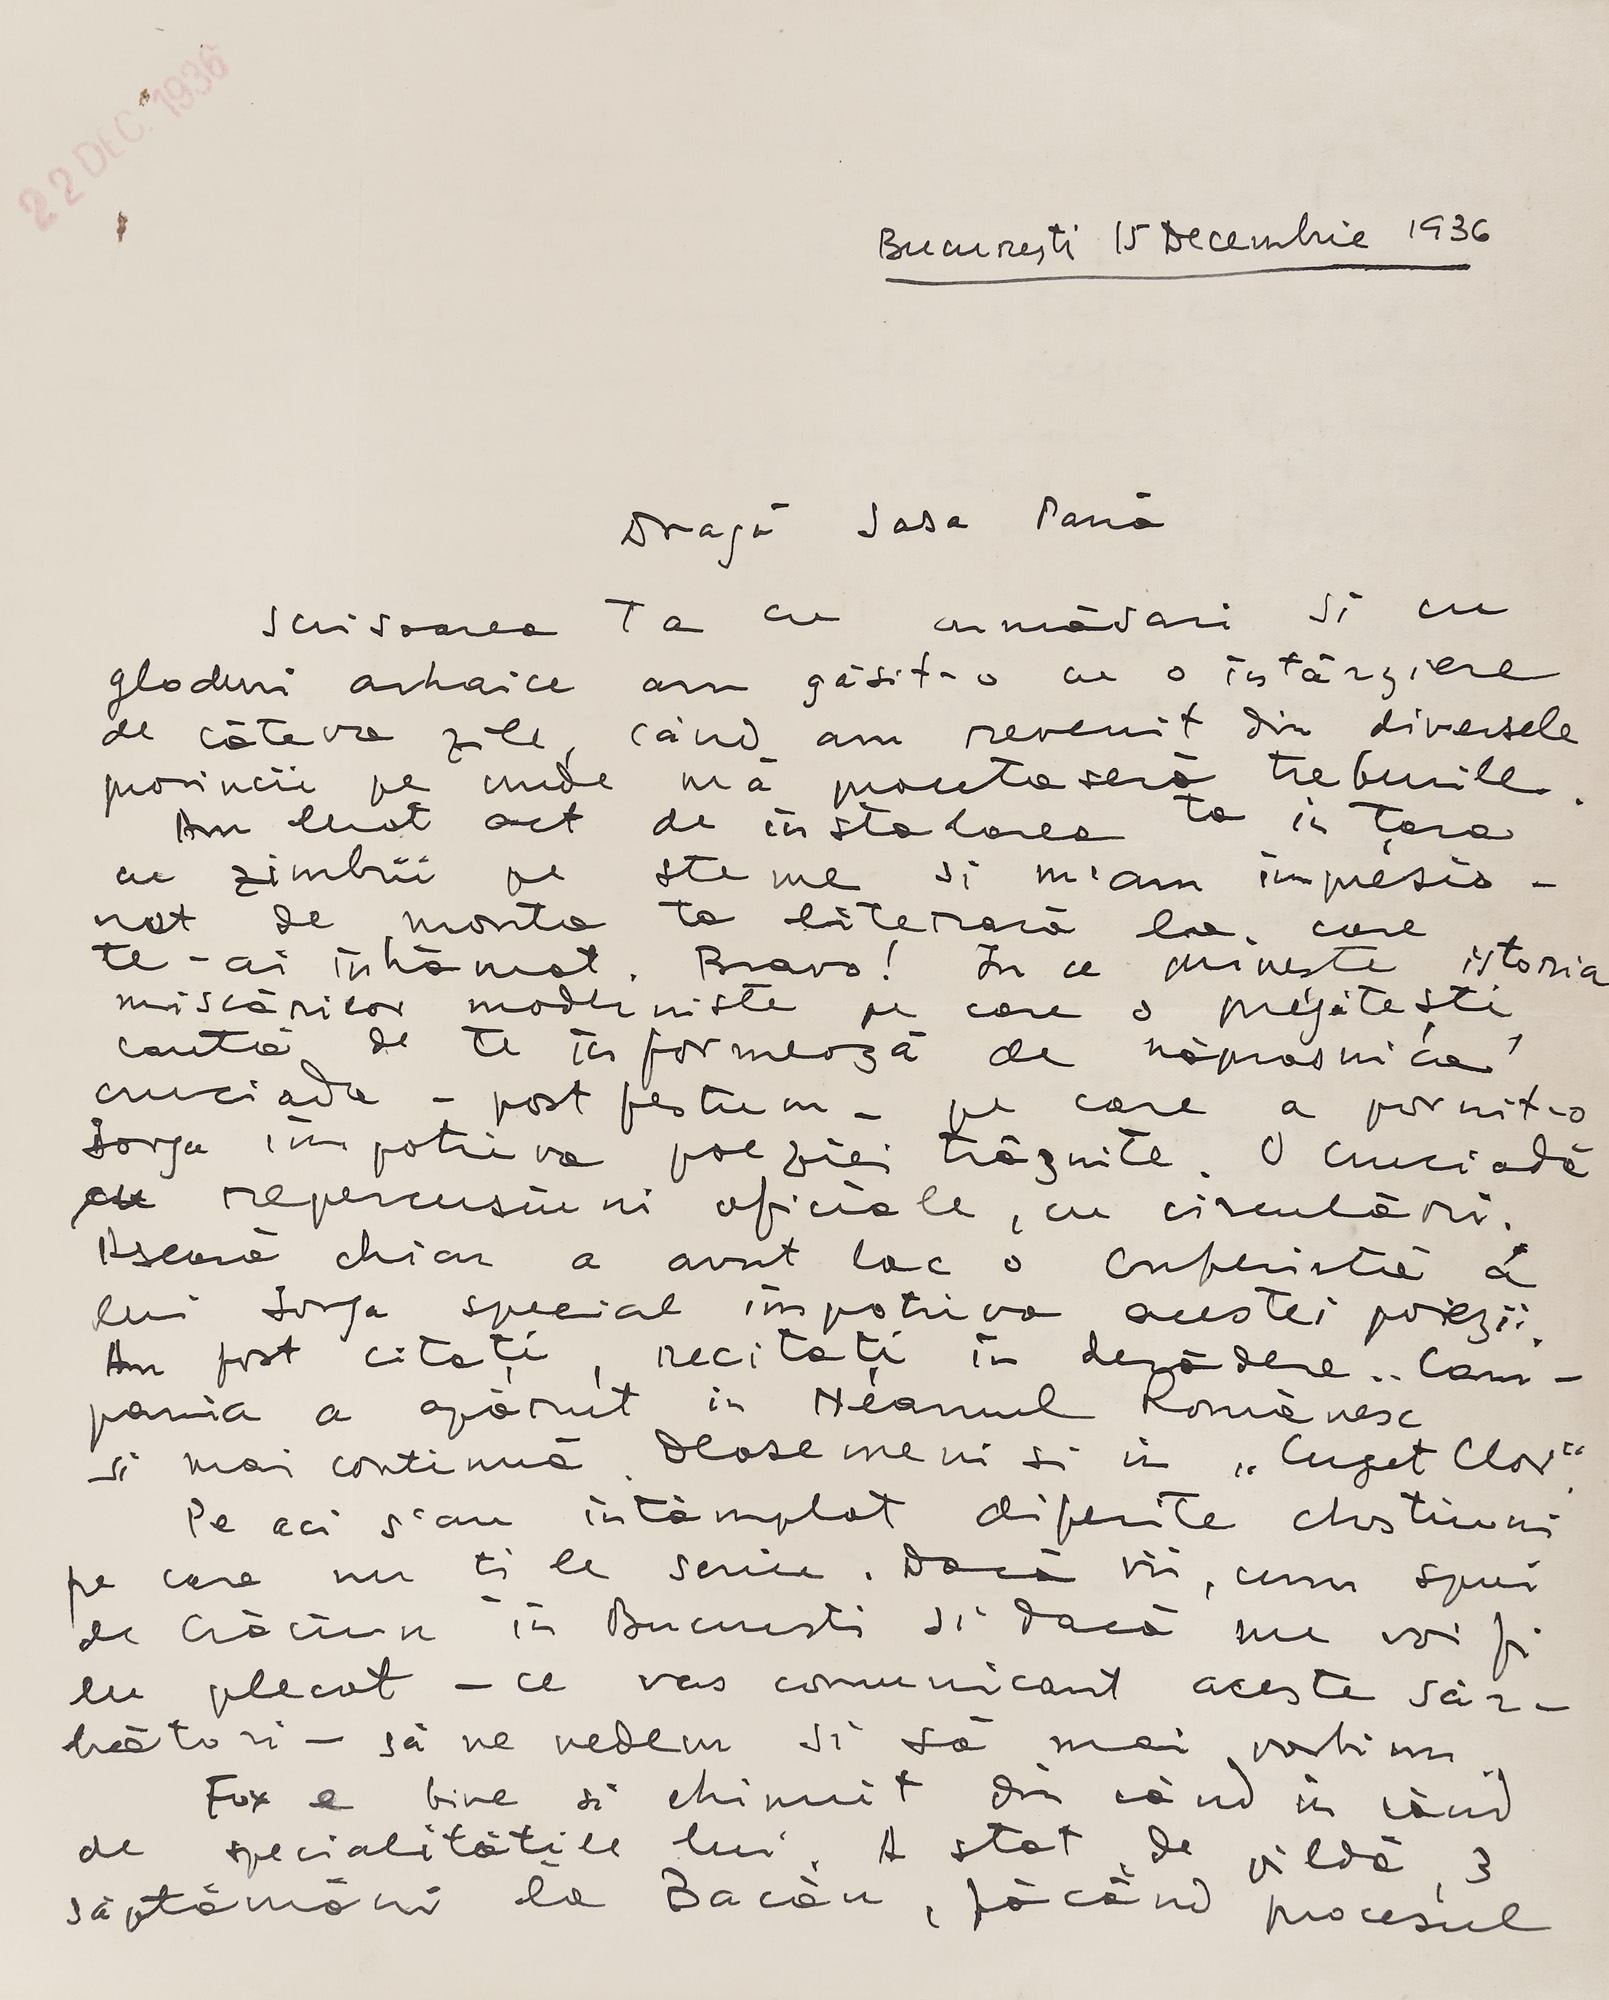 22 DEC. 1936
București 15 Decembrie 1936
Dragă Sașa Pană
Scrisoarea Ta cu și cu
gloduri arhaice am găsit-o cu o întârziere
de câteva zile, când am revenit din diversele
provincii pe unde mă purtaseră treburile.
Am luat act de instalarea ta in țara
cu zimbrii pe steme si m'am impresio-
nat de munca ta literară la care
te-ai inhămat. Bravo! In ce privește istoria
miscăricor moderniste pe care o pregătești
caută de te informează de năprasnica
cruciada - post festum - pe care a pornit-o
Iorga împotriva poeziei trăznite. O cruciadă
cu repercusiuni oficiale, cu circulări.
Aseară chiar a avut loc o conferință a
lui Iorga special împotriva acestei poiezii.
Am fost citați, recitați în Cam-
pania a apărut in Neamul Românesc
si mai continuă. Deasemeni si in „Cuget Clar".
Pe aci s'au întâmplat diferite chestiuni
pe care nu ți le scriu. Dacă vii, cum spui
de Crăciun în București si dacă nu voi fi
eu plecat - ce vas comunicant aceste săr-
bători - să ne vedem si să mai vorbim.
Fox e bine si chinuit din când în când
de specialitățile lui. A stat, de pildă, 3
săptămâni la Bacău, făcând procesul